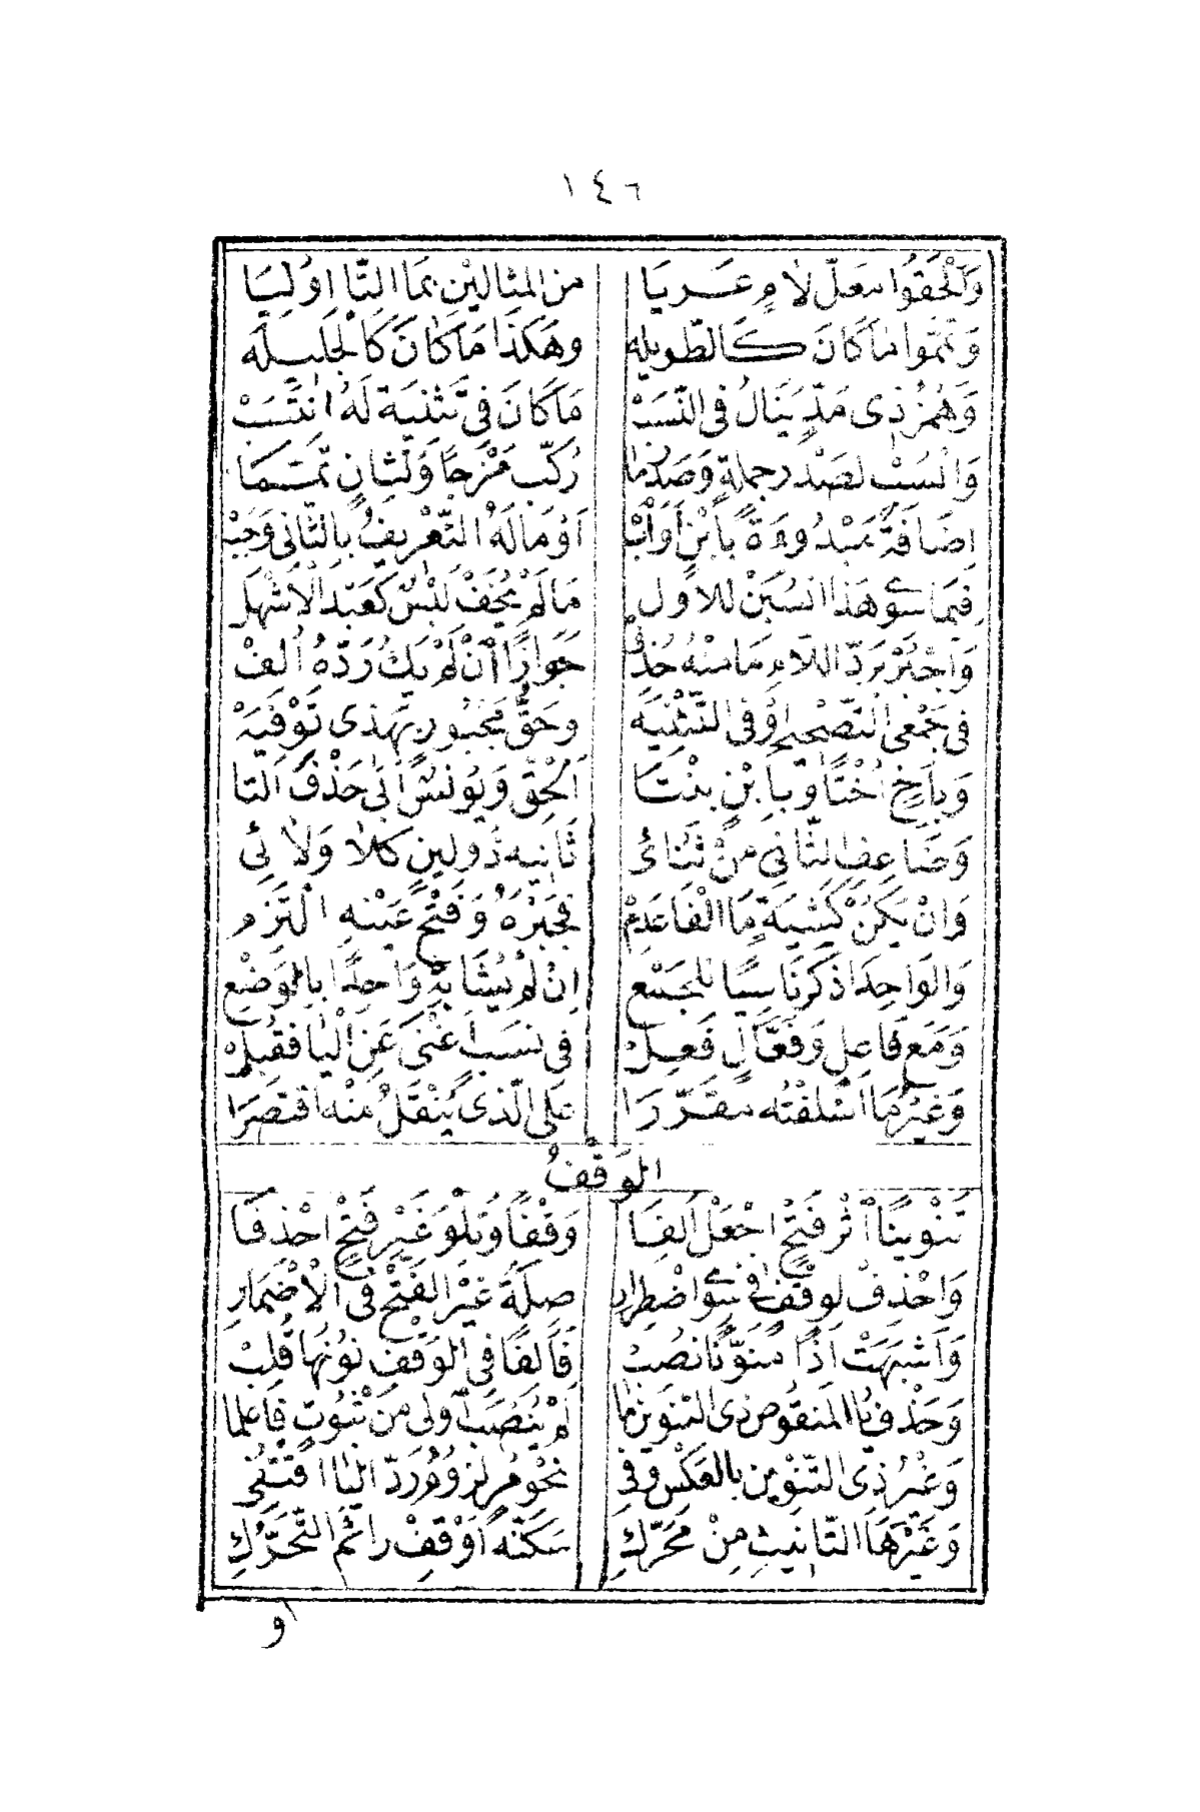 ١٤٦
وَأَلْحَقُوا مُعَلَّ لَامٍ عَرِيَا مِنَ المِثَالَيْنِ بِمَا التَّا أُولِيَا
وَتَمَّمُوا مَا كَانَ كَالطَّوِيلَه وَهَكَذَا مَا كَانَ كَالْجَلِيلَه
وَهَمْزُ ذِى مَدٍّ يُنَالُ فِى النَّسَبْ مَا كَانَ فِى تَثْنِيَةٍ لَهُ انْتَسَبْ
وَانْسُبْ لِصَدْرِ جُمْلَةٍ وَصَدْرِ مَا رُكِّبَ مَزْجًا وَلِثَانٍ تَمَّمَا
اِضَافَةً مَبْدُوءَةً بِابْنٍ أَوْ أَبْ اَوْ مَا لَهُ التَّعْرِيفُ بِالثَّانِى وَجَبْ
فِيمَا سِوَى هَذَا انْسُبَنْ لِلْأَوَّلِ مَا لَمْ يُخَفْ لَبْسٌ كَعَبْدِ الْأَشْهَلِ
وَاجْبُرْ بِرَدِّ اللَّامِ مَا مِنْهُ حُذِفْ جَوَازًا اَنْ لَمْ يَكُ رَدُّهُ أُلِفْ
فِى جَمْعَىِ التَّصْحِيحِ أَوْ فِى التَّثْنِيَه وَحَقُّ مَجْبُورٍ بِهَذِى تَوْفِيَهْ
وَبِأَخٍ أُخْتًا وَبِابْنٍ بِنْتَا اَلْحِقْ وَيُونُسٌ أَبَى حَذْفَ التَّا
وَضَاعِفِ الثَّانِىَ مِنْ ثُنَائِى ثَانِيهِ ذُو لِينٍ كَلَا وَلَائِى
وَاِنْ يَكُنْ كَشِيَةٍ مَا الْفَا عَدِمْ فَجَبْرُهُ وَفَتْحُ عَيْنِهِ الْتُزِم
وَالوَاحِدَ اذْكُرْ نَاسِبًا لِلجَمْعِ اِنْ لَمْ يُشَابِهْ وَاحِدًا بِالْوَضْعِ
وَمَعَ فَاعِلٍ وَفَعَّالٍ فَعِلْ فِى نَسَبٍ أَغْنَى عَنِ الْيَا فَقُبِلْ
وَغَيْرُ مَا أَسْلَفْتُهُ مُقَرَّرَا عَلَى الَّذِى يُنْقَلُ مِنْهُ اقْتُصِرَا
الوَقْفُ
تَنْوِينًا اثْرَ فَتْحٍ اجْعَلْ أَلِفَا وَقْفًا وَتِلْوَ غَيْرِ فَتْحٍ احْذِفَا
وَاحْذِفْ لِوَقْفٍ فِى سِوَى اضْطِرَارِ صِلَةَ غَيْرِ الفَتْحِ فِى الْاِضْمَارِ
وَاَشْبَهَتْ اِذًا مُنَوَّنًا نُصِبْ فَأَلِفًا فِى الوَقْفِ نُونُهَا قُلِبْ
وَحَذْفُ يَا المَنْقُوصِ ذِى التَّنْوِينِ مَا لَمْ يُنْصَبَ أَوْلَى مِنْ ثُبُوتٍ فَاعْلَمَا
وَغَيْرُ ذِى التَّنْوِينِ بِالعَكْسِ وَفِى نَحْوِ مُرٍ لُزُومُ رَدِّ اليَا اقْتُفِى
وَغَيْرَهَا التَّأْنِيثِ مِنْ مُحَرَّكِ سَكِّنْهُ أَوْ قِفْ رَائِمَ التَّحَرُّكِ
أو